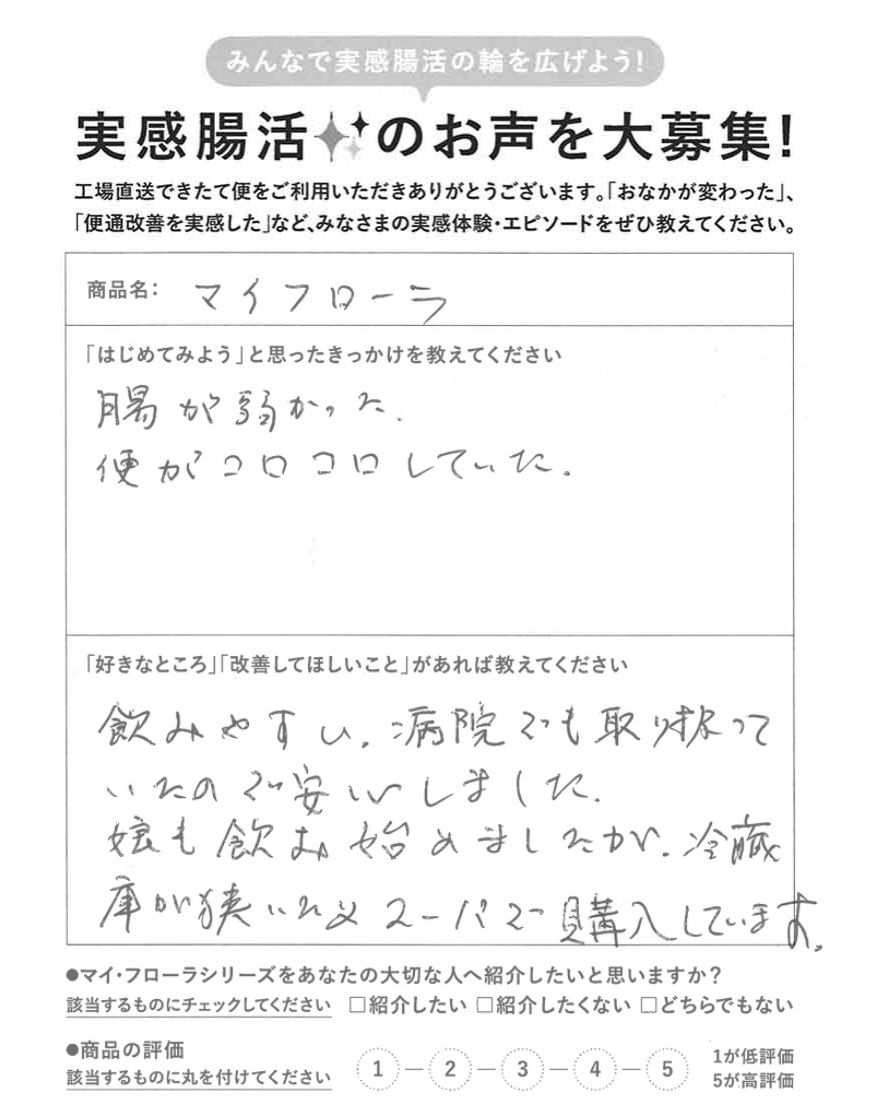 みんなで実感腸活の輪を広げよう!
実感腸活のお声を大募集!
工場直送できたて便をご利用いただきありがとうございます。「おなかが変わった」、
「便通改善を実感した」など、みなさまの実感体験・エピソードをぜひ教えてください。
商品名: マイフローラ
「はじめてみよう」と思ったきっかけを教えてください
腸が弱かった.
便がコロコロしていた.
「好きなところ」「改善してほしいこと」があれば教えてください
飲みやすい.病院でも取り扱って
いたので安心しました.
娘も飲み始めましたが.冷蔵
庫が狭いためスーパーで購入しています.
●マイ・フローラシリーズをあなたの大切な人へ紹介したいと思いますか?
該当するものにチェックしてください □紹介したい □紹介したくない □どちらでもない
●商品の評価
該当するものに丸を付けてください 1 — 2 — 3 — 4 — 5
1が低評価
5が高評価